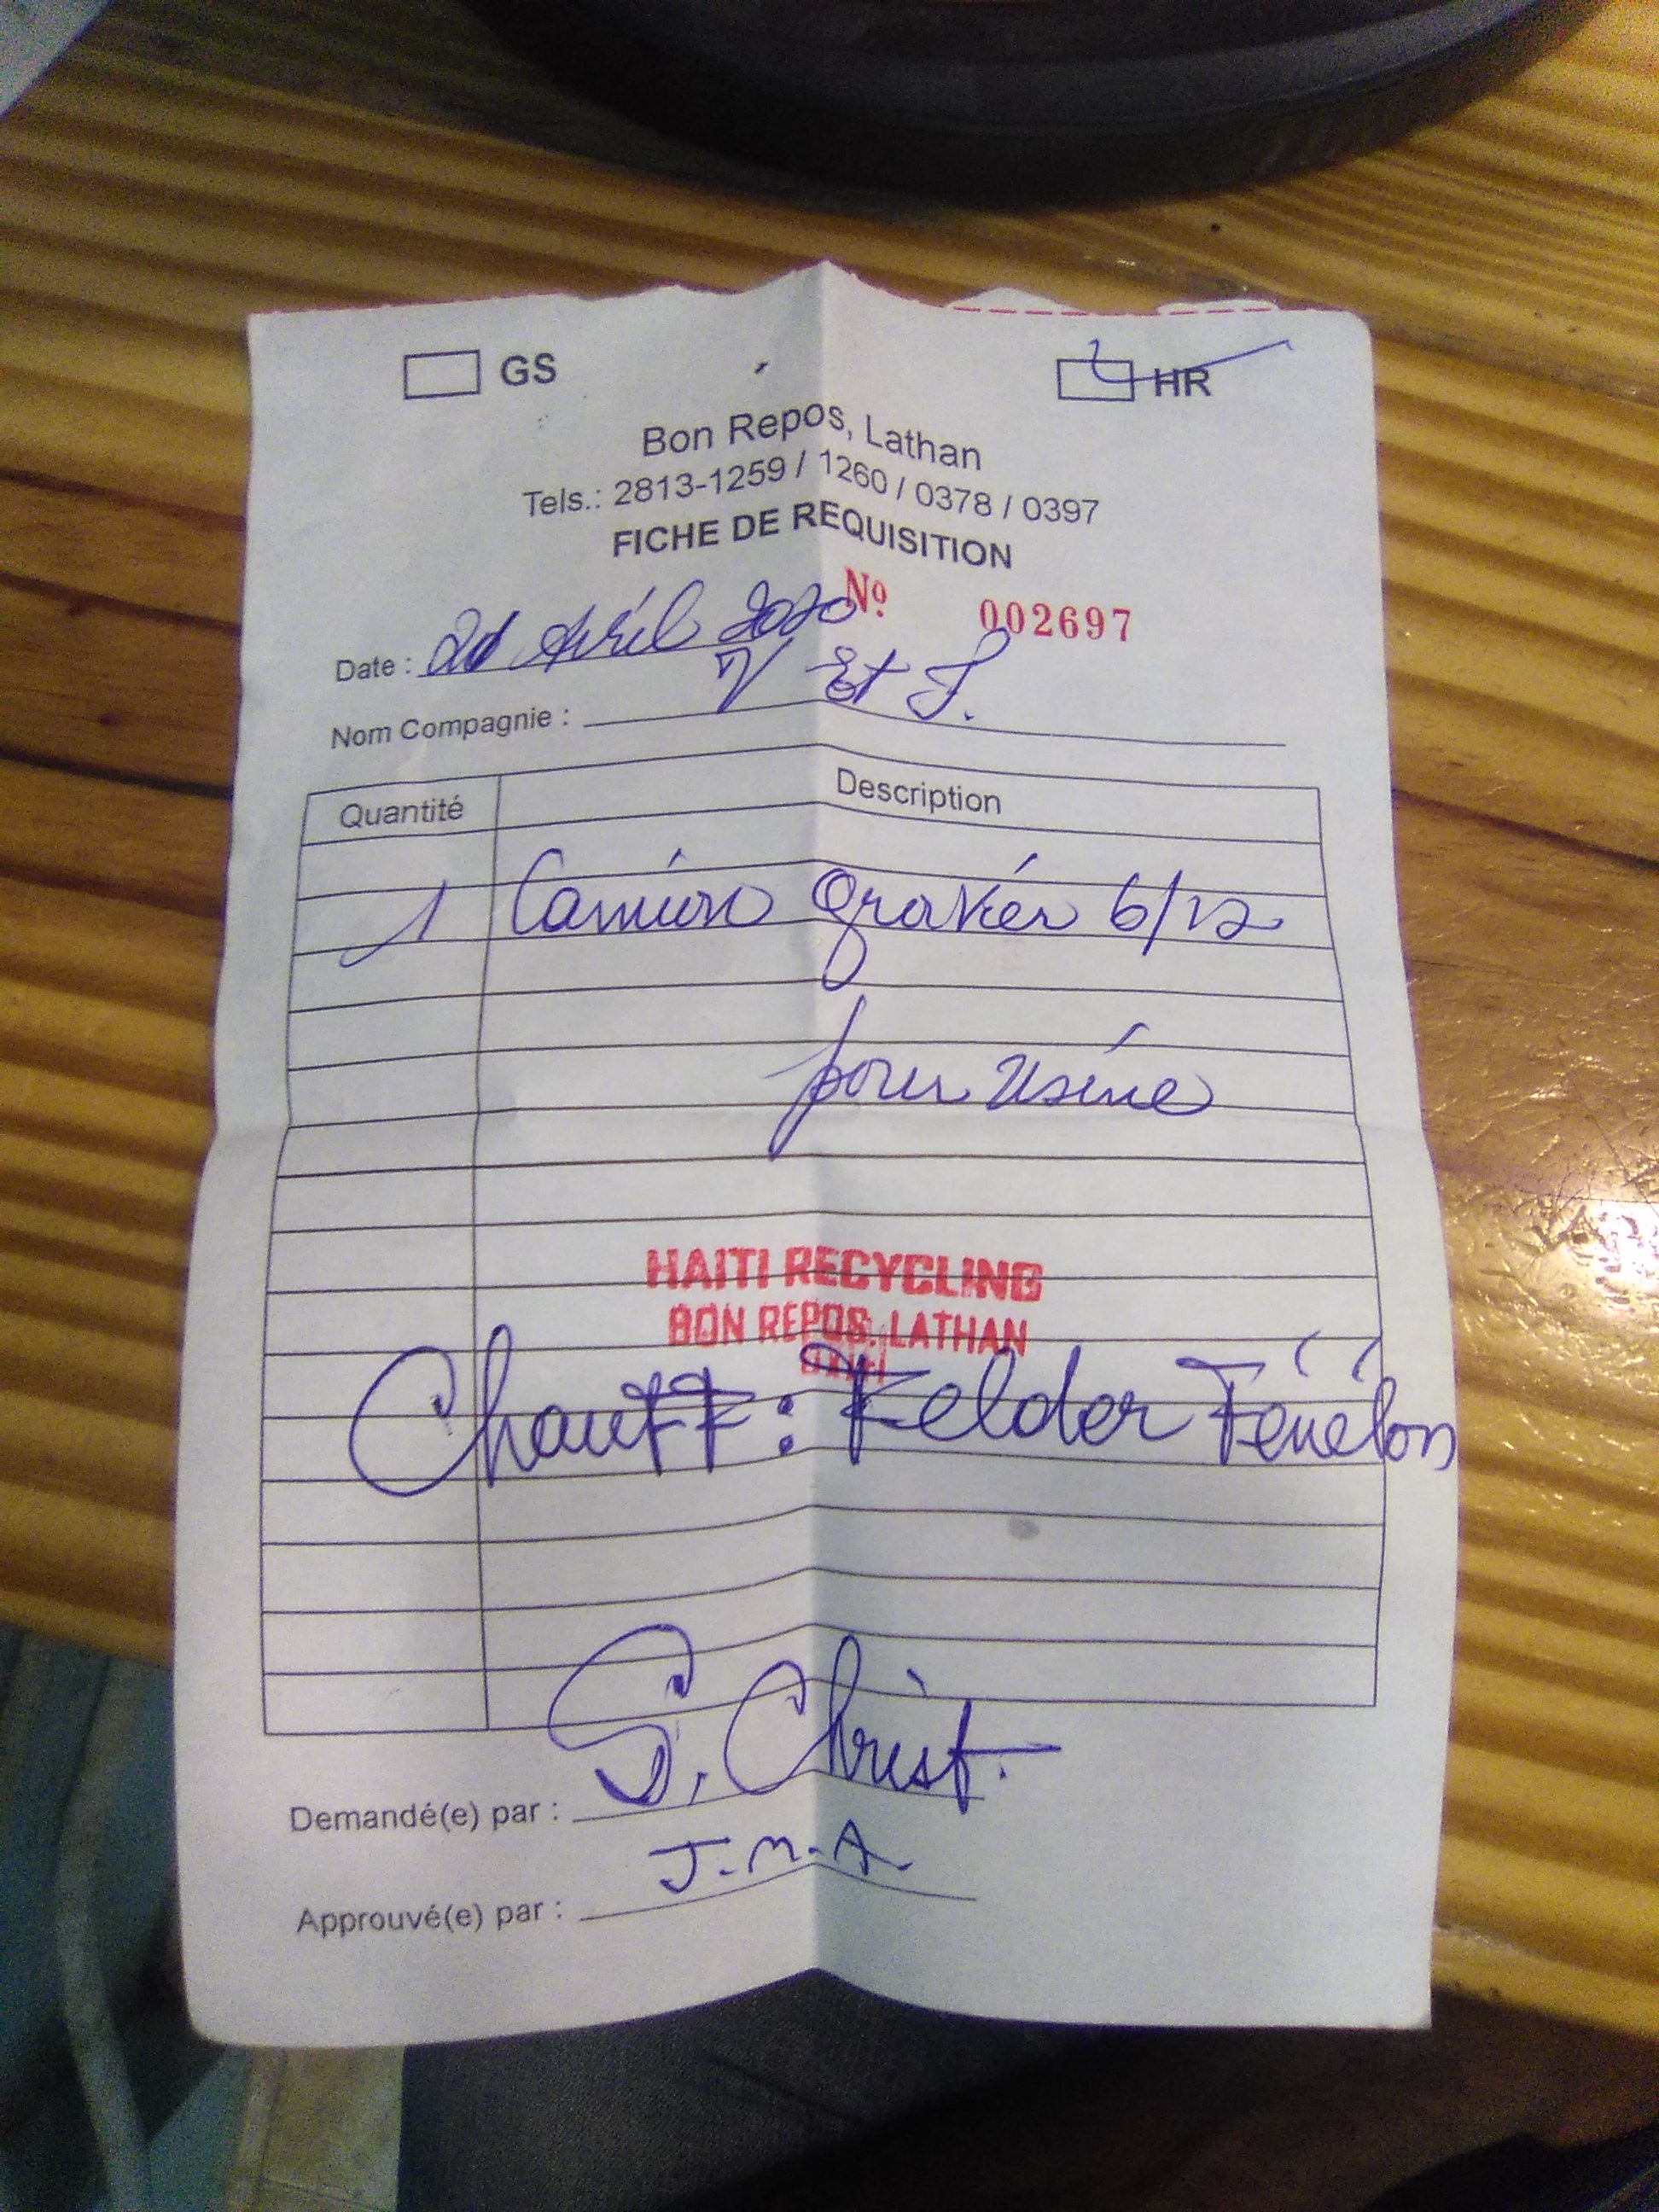 GS HR
Bon Repos, Lathan
Tels.: 2813-1259 / 1260 / 0378 / 0397
FICHE DE REQUISITION
Nº 002697
Date : Avril 2020
Nom Compagnie : V Et F.
Quantité Description
1 Camion gravier 6/12
pour usine
HAITI RECYCLING
BON REPOS, LATHAN
HAITI
Chauff : Felder Fénélon
Demandé(e) par : S. Christ.
Approuvé(e) par : J.M.A.